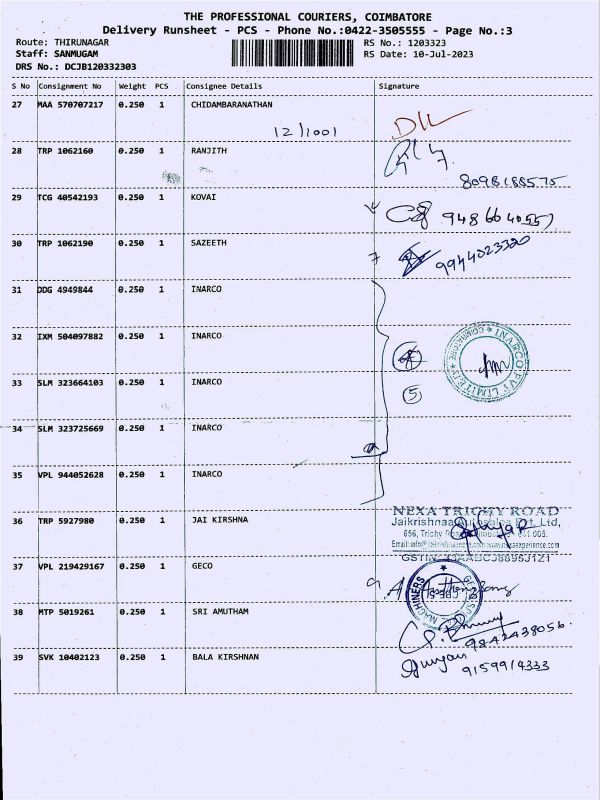 THE PROFESSIONAL COURIERS, COIMBATORE
Delivery Runsheet - PCS - Phone No.:0422-3505555 - Page No.:3
Route: THIRUNAGAR RS No.: 1203323
Staff: SANMUGAM RS Date: 10-Jul-2023
DRS No.: DCJB120332303
S No Consignment No Weight PCS Consignee Details Signature
27 MAA 570707217 0.250 1 CHIDAMBARANATHAN
12/1001
28 TRP 1062160 0.250 1 RANJITH
8098188575
29 TCG 40542193 0.250 1 KOVAI
9486640557
30 TRP 1062190 0.250 1 SAZEETH
9944023320
31 DDG 4949844 0.250 1 INARCO
32 IXM 504097882 0.250 1 INARCO
INARCO PVT LIMITED COIMBATORE
33 SLM 323664103 0.250 1 INARCO
5
34 SLM 323725669 0.250 1 INARCO
35 VPL 944052628 0.250 1 INARCO
NEXA TRICHY ROAD
36 TRP 5927980 0.250 1 JAI KIRSHNA
Pvt. Ltd,
656, Trichy
641 005.
37 VPL 219429167 0.250 1 GECO
MACHINERS
38 MTP 5019261 0.250 1 SRI AMUTHAM
9842438056.
39 SVK 10402123 0.250 1 BALA KIRSHNAN
9159914333